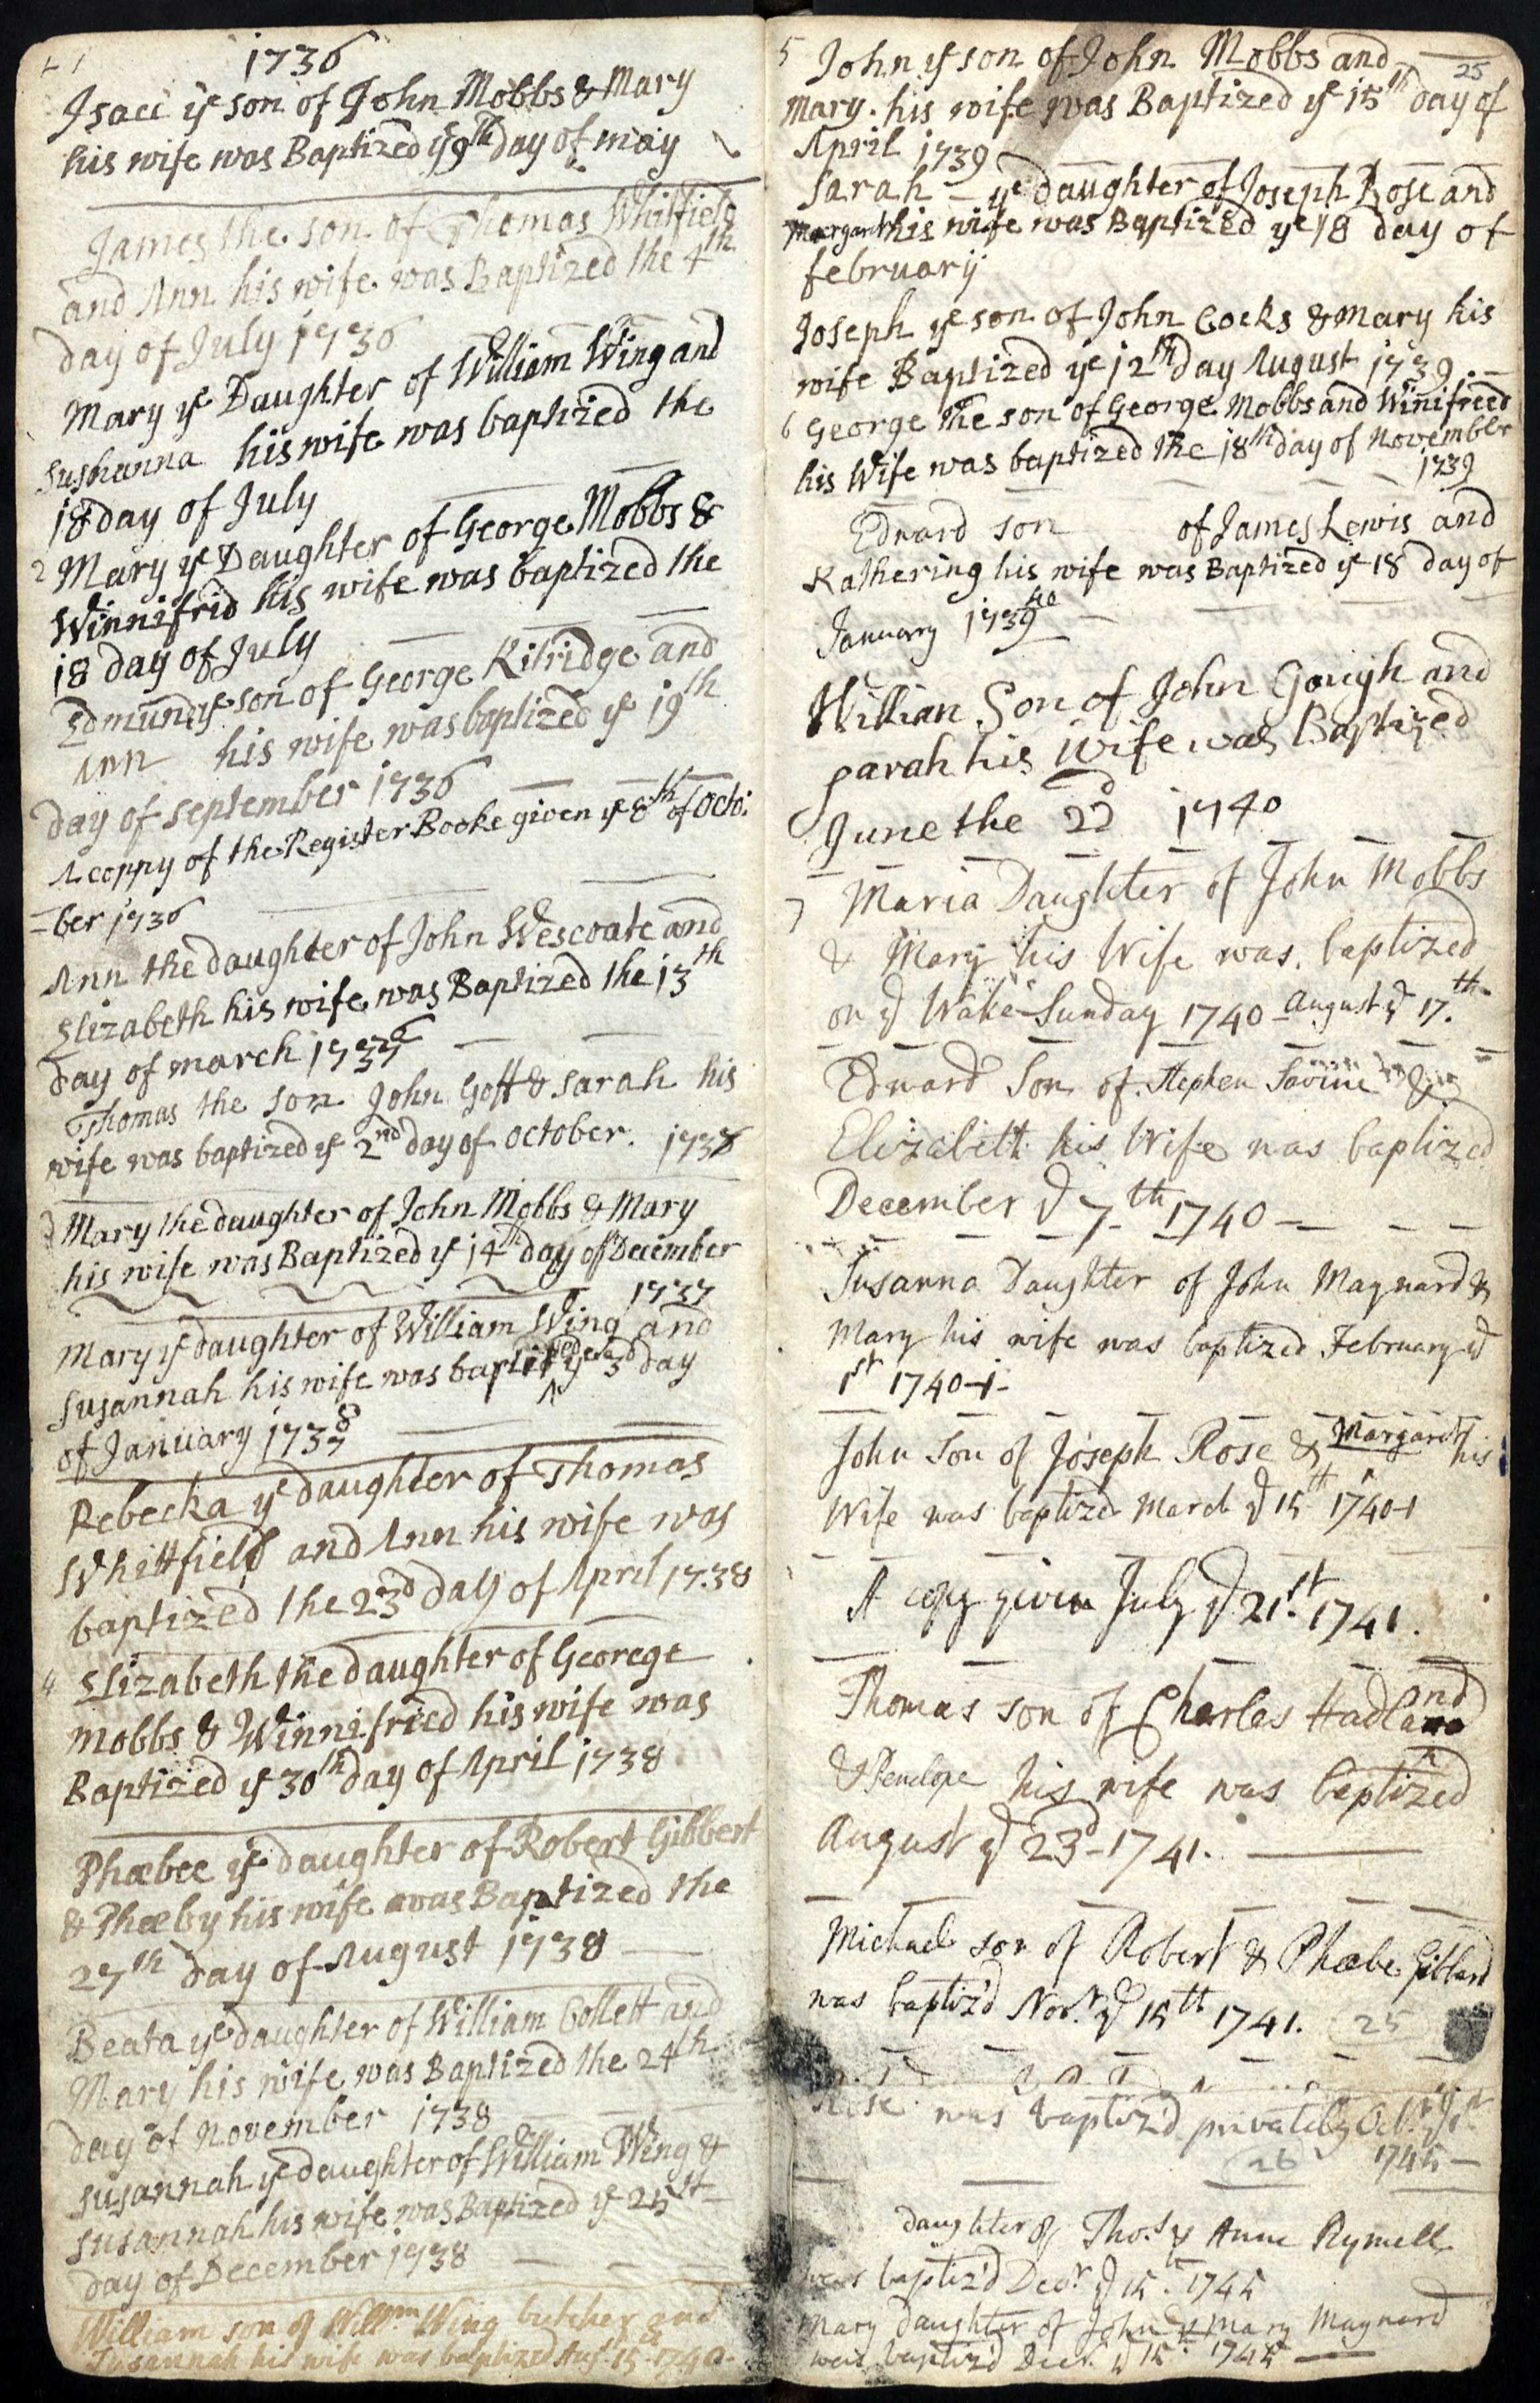 1736
Isacc ye son of John Mobbs & Mary
his wife was Baptized ye 9th day of may
James the son of Thomas Whitfield
and Ann his wife was Baptized the 4th
day of July 1736
Mary ye Daughter of William Wing and
Sushanna his wife was baptized the
18 day of July
2 Mary ye Daughter of George Mobbs &
Winnifrid his wife was baptized the
18 day of July
Edmund ye son of George Kitridge and
Ann his wife was baptized ye 19th
day of september 1736
A coppy of the Register Booke given ye 8th of Octo:
-ber 1736
Ann the daughter of John Wescoate and
Elizabeth his wife was Baptized the 13th
day of march 1736/7
Thomas the son John Goff & sarah his
wife was baptized ye 2nd day of october. 1737
3 Mary the daughter of John Mobbs & Mary
his wife was Baptized ye 14th day of December
1737
Mary ye daughter of William Wing and
susannah his wife was baptized ye 3d day
of January 1737/8
Rebecka ye daughter of Thomas
Whittfield and Ann his wife was
baptized the 23d day of April 1738
4 Elizabeth the daughter of Georege
Mobbs & Winnifried his wife was
Baptized ye 30th day of April 1738
Phœbee ye daughter of Robert Gibbert
& Phœby his wife was Baptized the
27th day of August 1738
Beata ye daughter of William Collett and
Mary his wife was Baptized the 24th
day of november 1738
susannah ye daughter of William Wing &
susannah his wife was Baptized ye 25st
day of December 1738
William son of Willm Wing butcher and
Susannah his wife was baptized Augt 15th 1740
25
5 John ye son of John Mobbs and
Mary his wife was Baptized ye 15th day of
April 1739
Sarah ye daughter of Joseph Rose and
Margaret his wife was Baptized ye 18 day of
february
Joseph ye son of John Cocks & Mary his
wife Baptized ye 12th day August 1739
6 George the son of George Mobbs and Winifreed
his Wife was baptized the 18th day of November
1739
Edward son of James Lewis and
Kathering his wife was Baptized ye 18 day of
January 1739/40
Willian Son of John Gough and
sarah his wife was Baptized
June the 2d 1740
7 Maria Daughter of John Mobbs
& Mary his Wife was baptized
on ye Wake-Sunday 1740 August ye 17.th
Edward Son of Stephen Savine &
Elizabeth his Wife was baptized
December ye 7th 1740
Susanna Daughter of John Maynard &
Mary his wife was baptized February ye
1st 1740-1-
John Son of Joseph Rose & Margaret his
Wife was baptized March ye 15th 1740-1
A copy given July ye 21st 1741.
Thomas son of Charles Hadland
& Penelope his wife was baptized
August ye 23d-1741.
Michael son of Robert & Phœbe Gibbard
was baptiz'd Novr ye 15th 1741. 25
Rose was baptiz'd privately Octr ye 1st
26 1745
daughter of Thos & Anne Rymell
was baptiz'd Decr ye 15th 1745
Mary daughter of John & Mary Maynard
was baptiz'd Decr ye 15th 1745